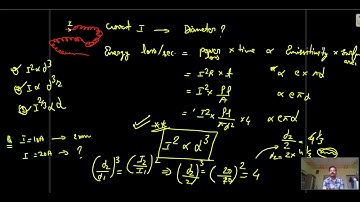 I
Current I → Diameter ?
Energy loss/sec = power loss × time ∝ Emissitivity × surface area
= I²R × 1 ∝ e × πd
= I² × ρl/A ∝ eπd
= I² × ρ1/πd² × 4 ∝ eπd
① I² ∝ d³
② I ∝ d^3/2
③ I^2/3 ∝ d
I² ∝ d³
Q I = 10A → 2mm
I = 20A → ?
(d₂/d₁)³ = (I₂/I₁)² ⇒ (d₂/2)³ = (20/10)² = 4
d₂/2 = 4^1/3
d₂ = 2 × 4^1/3